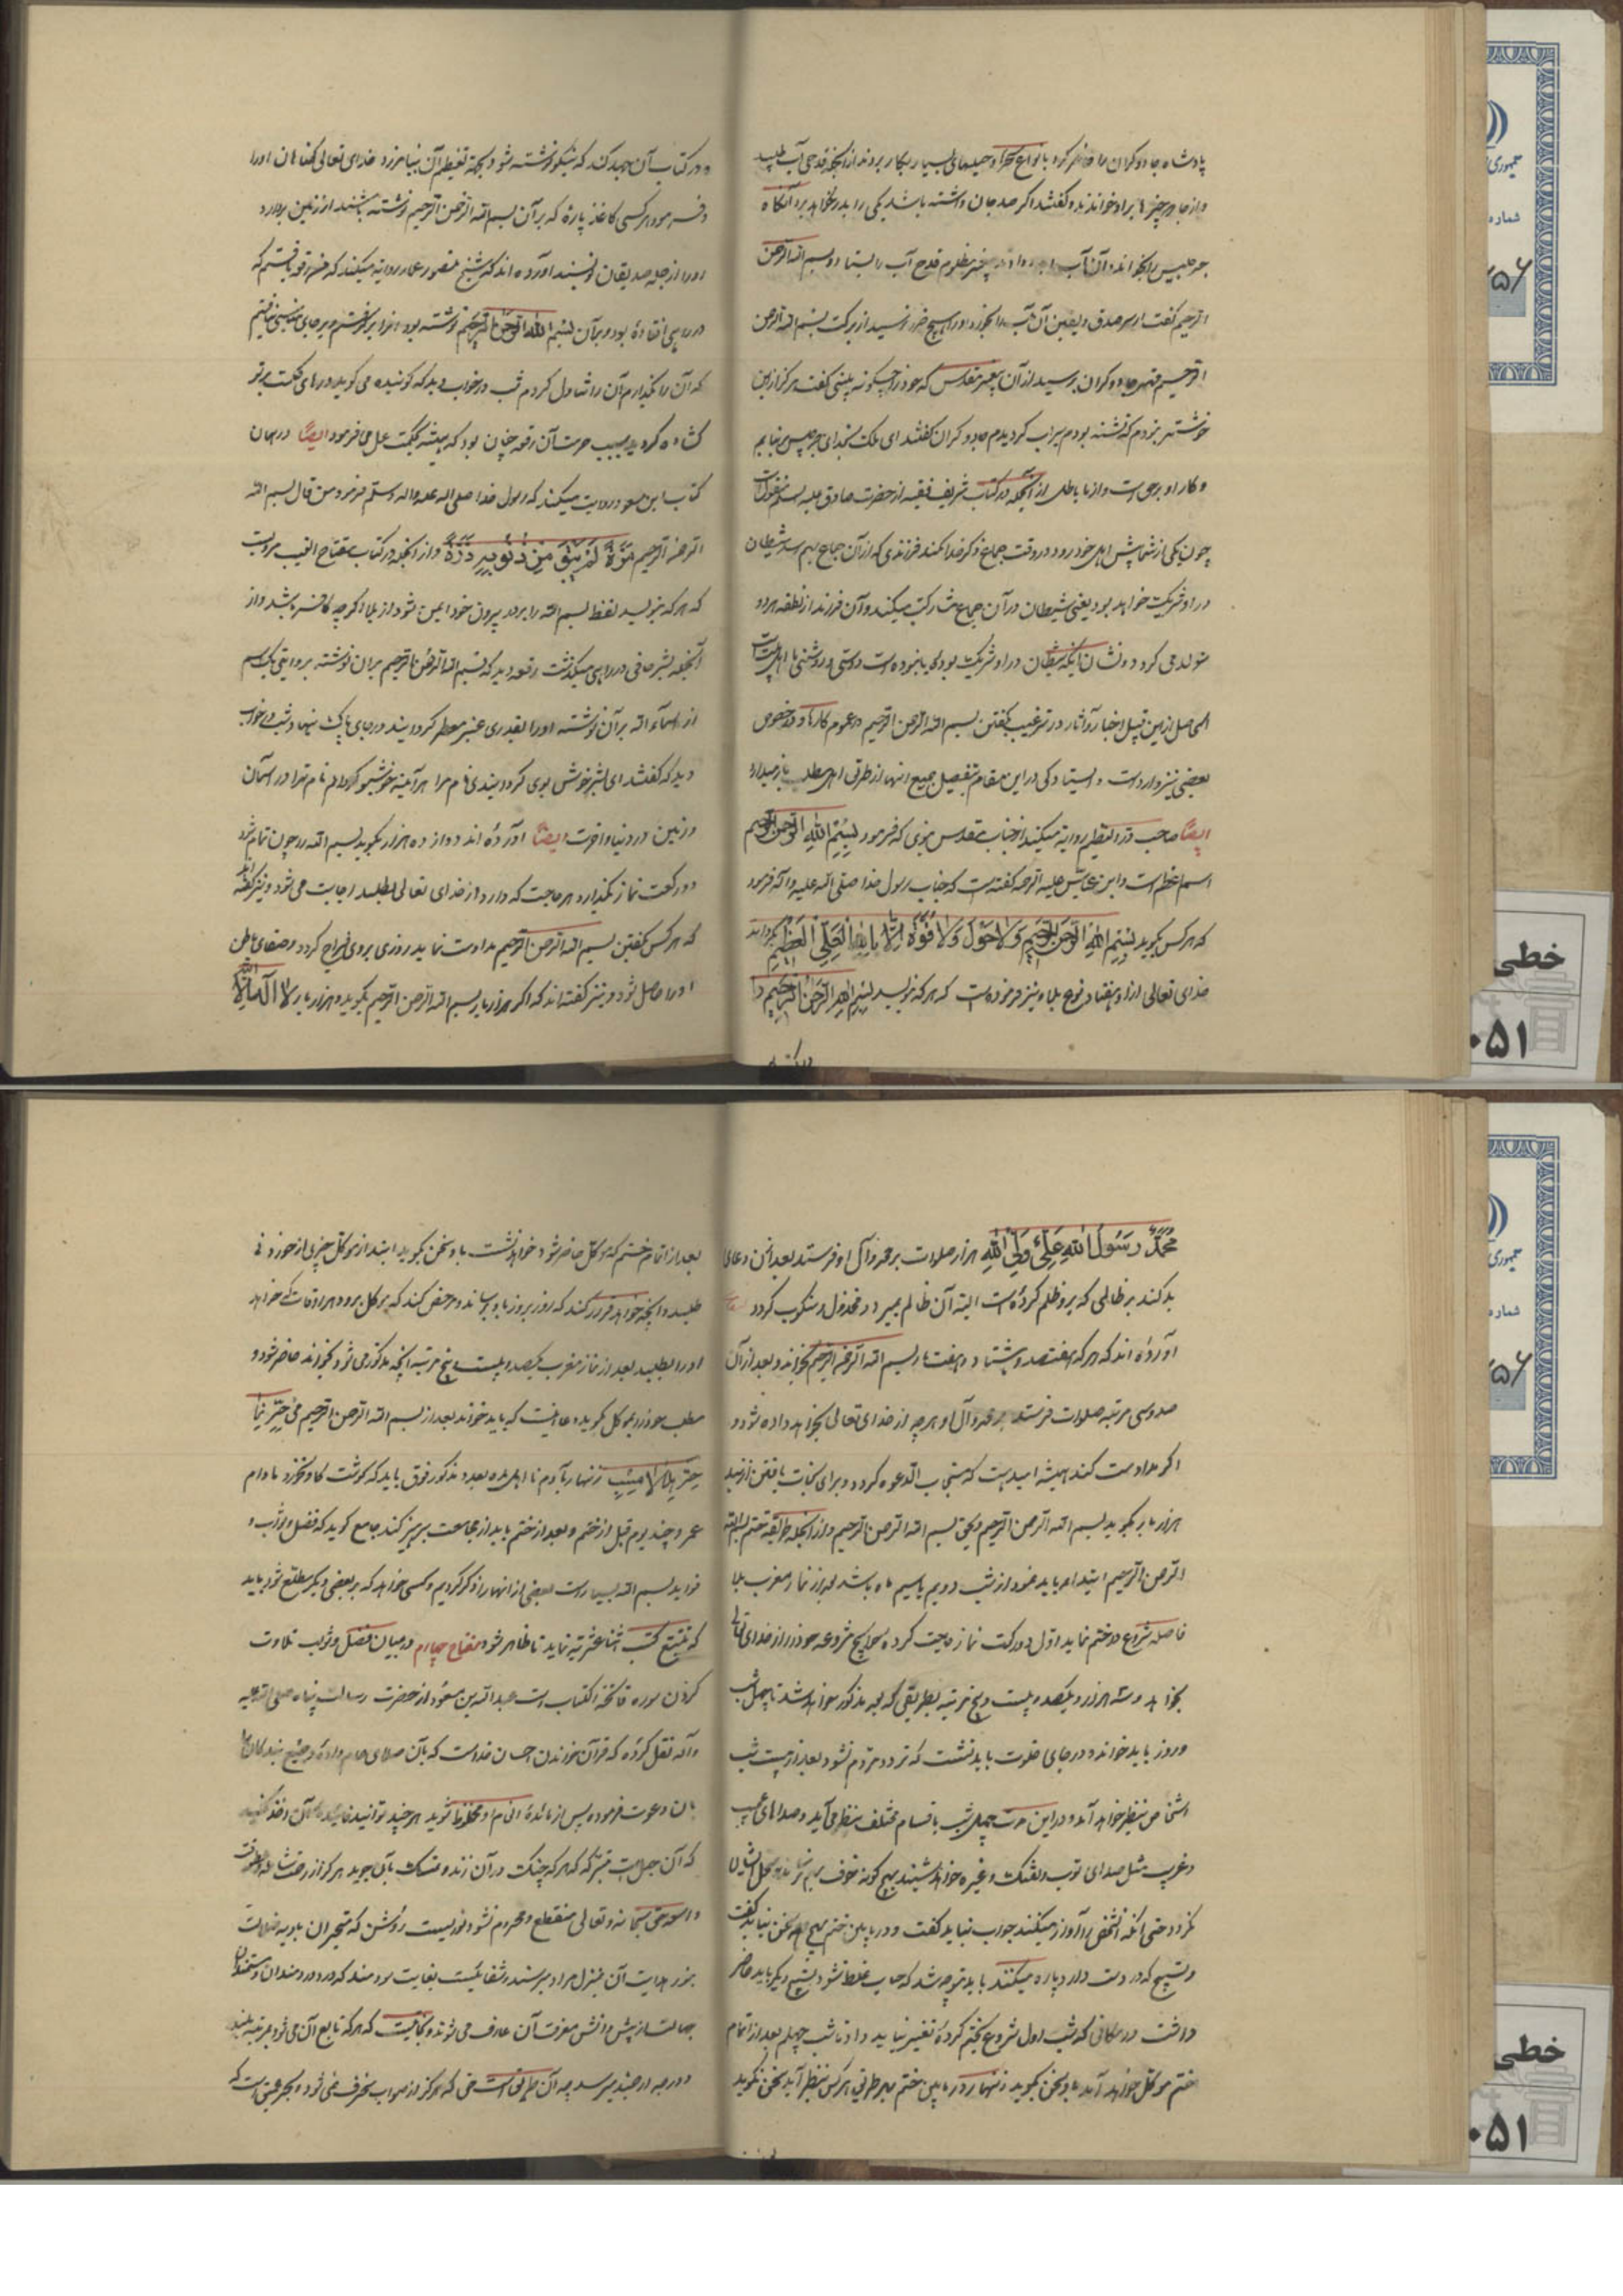 پادشاه جادوکران را حاضر کرد بانواع سحر و حیلهای بسیار بکار بردند از آنجمله قدحی آب طلبید
و از جادو چیزها بر او خواندند و گفتند اکر صد جان داشته باشد یکی را بدر نخواهد برد آنکاه
جرجیس را بخواند و آن آب پیغمبر مظلوم قدح آب را بستاد و بسم الله الرحمن
الرحیم گفت از سر صدق و یقین آن آب را بخورد و او را هیچ ضرر نرسید از برکت بسم الله الرحمن
الرحیم مهتر جادوکران پرسید از آن پیغمبر مقدس که خود را چکونه بینی گفت هرگز ازین
خوشتر نبودم که تشنه بودم سیراب کردیدم جادوکران گفتند ای ملک خدای جرجیس
و کار او برحق است و از ما باطل از آنجمله در کتاب شریف فقیه از حضرت صادق علیه السلام منقولست
چون یکی از شما پیش اهل خود رود در وقت جماع ذکر خدا نکند فرزندی که از آن جماع بهم رسد شیطان
در او شریک خواهد بود یعنی شیطان در آن جماع مشارکت میکند و آن فرزند از نطفه هر دو
متولد می کردد و نشان اینکه شیطان در او شریک بوده یا نبوده است دوستی و دشمنی با اهل بیت است
الحاصل ازین قبیل اخبار و آثار در ترغیب بگفتن بسم الله الرحمن الرحیم در عموم کارها و در خصوص
بعضی نیز وارد است و ایستادکی در این مقام بتفصیل جمیع انها از طرق اهل مطلب باز میدارد
ایضا صاحب در النظیم روایة میکند از جناب مقدس نبوی که فرمود بسم الله الرحمن الرحیم
اسم اعظم است و ابن عباس علیه الرحمه گفته است که جناب رسول خدا صلی الله علیه و آله فرمود
که هر کس بگوید بسم الله الرحمن الرحیم و لا حول و لا قوة الا بالله العلی العظیم بگرداند
خدای تعالی از او هفتاد نوع بلا و نیز فرموده است که هر که بنویسد بسم الله الرحمن الرحیم را
و در کتاب آن جهد کند که نیکو نوشته شود و بجهة تعظیم آن بیامرزد خدای تعالی گناهان او را
و فرمود هر کسی کاغذ پارهٔ که بر آن بسم الله الرحمن الرحیم نوشته باشد از زمین بردارد
او را از جمله صدیقان نویسند آورده اند که شیخ منصور عمار روایة میکند که من رقعه یافتم که
در راهی افتاده بود و بر آن بسم الله الرحمن الرحیم نوشته بود انرا برگرفتم و بر جای مناسبی نیافتم
که آن را بگذارم آن را تناول کردم شب در خواب دید که گوینده می گوید درهای حکمت بر تو
کشاده کردید بسبب حرمت آن رقعه چنان بود که همیشه بحکمت عمل می فرمود ایضا در همان
کتاب ابن مسعود روایت میکند که رسول خدا صلی الله علیه واله وسلم فرمود من قال بسم الله
الرحمن الرحیم مرّة لم یبق من ذنوبه ذرّة و از آنجمله در کتاب مفتاح الغیب مرویست
که هر که بنویسد لفظ بسم الله را بر در بیرون خود ایمن شود از بلا اکر چه کافر باشد و از
آنجمله بشر حافی در راهی میکذشت رقعه دید که بسم الله الرحمن الرحیم بران نوشته بروایتی یک اسم
از اسماء الله بر آن نوشته او را بقدری عنبر معطر کردانید و در جای پاک نهاد و شب در خواب
دید که گفتند ای بشر خوش بوی کردانیدی نام مرا هر آینه خوشبو کردانم نام ترا در آسمان
و زمین و در دنیا و اخرت ایضا آورده اند دوازده هزار بگوید بسم الله و چون تمام شود
دو رکعت نماز بگذارد و هر حاجت که دارد از خدای تعالی بطلبد اجابت می شود و نیز گفته اند
که هر کس بگفتن بسم الله الرحمن الرحیم مداومت نماید روزی بر وی فراخ کردد و صفای باطن
او را حاصل شود و نیز گفته اند که اکر هزار بار بسم الله الرحمن الرحیم بگوید و هزار بار لا اله الا الله
محمد رسول الله علی ولی الله هزار صلوات بر محمد و آل او فرستد بعد از آن دعای
بد کند بر ظالمی که بر او ظلم کرده است البته آن ظالم بمیرد و مخذول و منکوب کردد
آورده اند که هر که هفتصد و هشتاد و هفت بار بسم الله الرحمن الرحیم بخواند و بعد از آن
صد و سی مرتبه صلوات فرستد بر محمد و آل او هر چه از خدای تعالی بخواهد داده شود و
اکر مداومت کند همیشه امید است که مستجاب الدعوه کردد و برای نجات یافتن از بند
هزار بار بگوید بسم الله الرحمن الرحیم و بحق بسم الله الرحمن الرحیم و از آنجمله طریقه ختم بسم الله
الرحمن الرحیم ابتداء باید نمود از شب دویم یا سیم ماه باشد بعد از نماز مغرب بلا
فاصله شروع در ختم نماید اول دو رکعت نماز حاجت کرده حوایج مشروعه خود را از خدای تعالی
بخواهد و سه هزار و یکصد و بیست و پنج مرتبه بطریقی که بعد مذکور خواهد شد تا چهل شب
و روز باید خواند و در جای خلوت باید نشست که تردد مردم نشود بعد از بیست شب
اشخاص بنظر خواهد آمد و در این مدت چهل شب باقسام مختلف بنظر می آید و صداهای عجیب
و غریب مثل صدای توپ و تفنک و غیره خواهد شنید هیچ کونه خوف
نکردد حتی انکه شخصی را آواز میکنند جواب نباید گفت و در مابین ختم هیچ سخن نباید گفت
و تسبیح که در دست دارد پاره میکنند باید متوجه شد که حساب غلط نشود تسبیح دیکر باید حاضر
داشت در مکانی که شب اول شروع بختم کرده تغییر نباید داد تا شب چهلم بعد از اتمام
ختم موکل خواهد آمد باو سخن بگوید زنهار در مابین ختم بهر طریق هر کس بنظر آید سخن نگوید
بعد از اتمام ختم که موکل حاضر شود خواهد نشست با او سخن بگوید ابتدا از موکل چیزی از خوردنی
طلبد و آنچه خواهد قرار کند که روز بروز باو برساند و مرخص کند که موکل برود هر اوقات که خواهد
او را بطلبد بعد از نماز مغرب یکصد و بیست و پنج مرتبه آنچه مذکور می شود بخواند حاضر شود و
مطلب خود را بموکل بگوید و دعا اینست که باید خواند بعد از بسم الله الرحمن الرحیم
زنهار بآدم نا اهل نده بعدد مذکور فوق باید که گوشت کاو نخورد مادام
عمر و چند یوم قبل از ختم و بعد از ختم باید از مجامعت پرهیز کند جامع گوید که فضل و ثواب و
فواید بسم الله بسیار است بعضی از انها را ذکر کردیم و کسی خواهد که بر بعضی دیکر مطلع شود باید
که تتبع کتب اثنا عشریه نماید تا ظاهر شود مفتاح چهارم در بیان فضل و ثواب تلاوت
کردن سوره فاتحة الکتاب است عبدالله بن مسعود از حضرت رسالت پناه صلی الله علیه
و آله نقل کرده که قرآن خواندن احسان خداست که بآن صلای عام داده و جمیع بندکان را
بآن دعوت فرموده پس از مائدهٔ انعام او محظوظ شوید هر چند توانید فایده از آن اخذ کنید
که آن حبلیست متین که هر که چنک در آن زند و متمسک بآن جوید هرکز از رحمت شامله
واسعه حق سبحانه و تعالی منقطع و محروم نشود و نوریست روشن که متحیران بادیه ضلالت
بنور هدایت آن بمنزل مراد میرسند و شفائیست بغایت سودمند که دردمندان و مستمندان
جهالت از پرتو دانش معرفت آن عارف می شوند و نجاتیست که هر که تابع آن می شود بمرتبه بلند
و درجه ارجمند میرسد چه آن طریق راست حق که هرکز از صواب منحرف نمی شود و بحر عمیق است که
خطی
شماره
۰۵۱